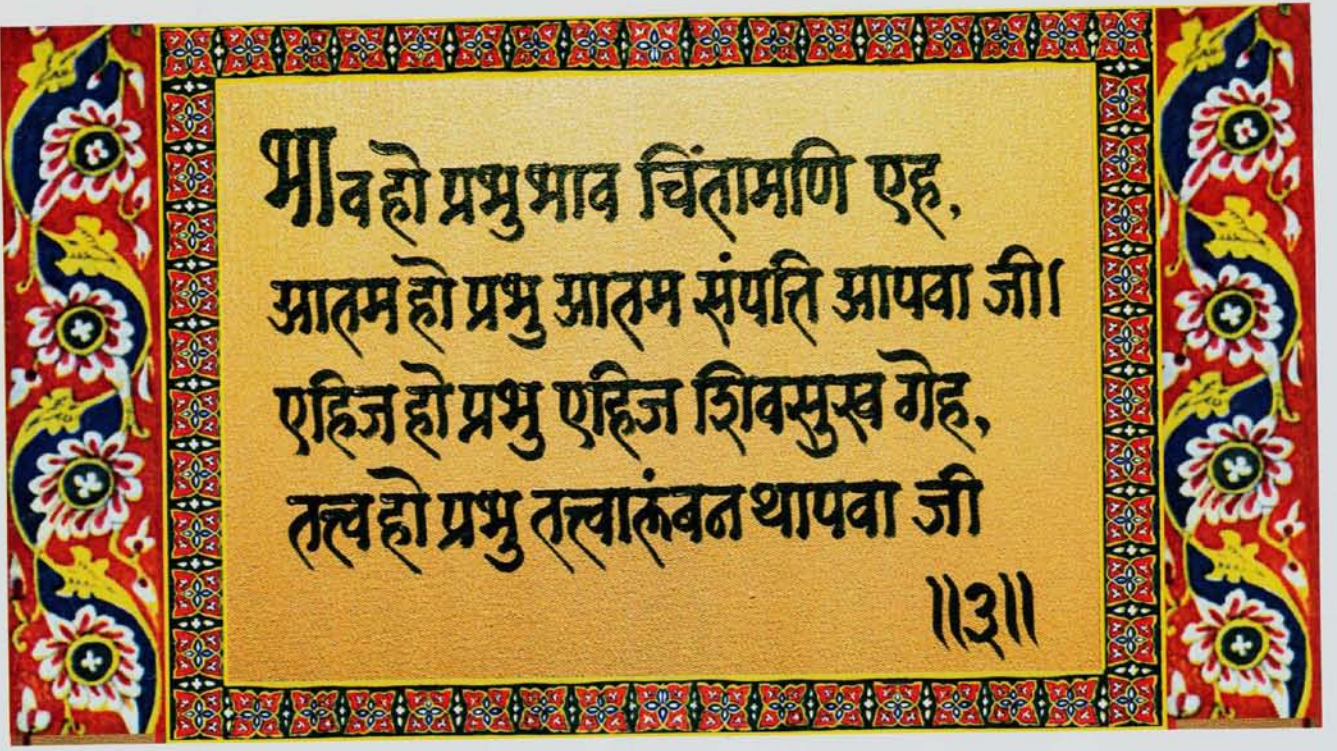 भाव हो प्रभु भाव चिंतामणि एह,
आतम हो प्रभु आतम संपत्ति आपवा जी।
एहिज हो प्रभु एहिज शिवसुख गेह,
तत्त्व हो प्रभु तत्त्वालंबन थापवा जी
॥३॥